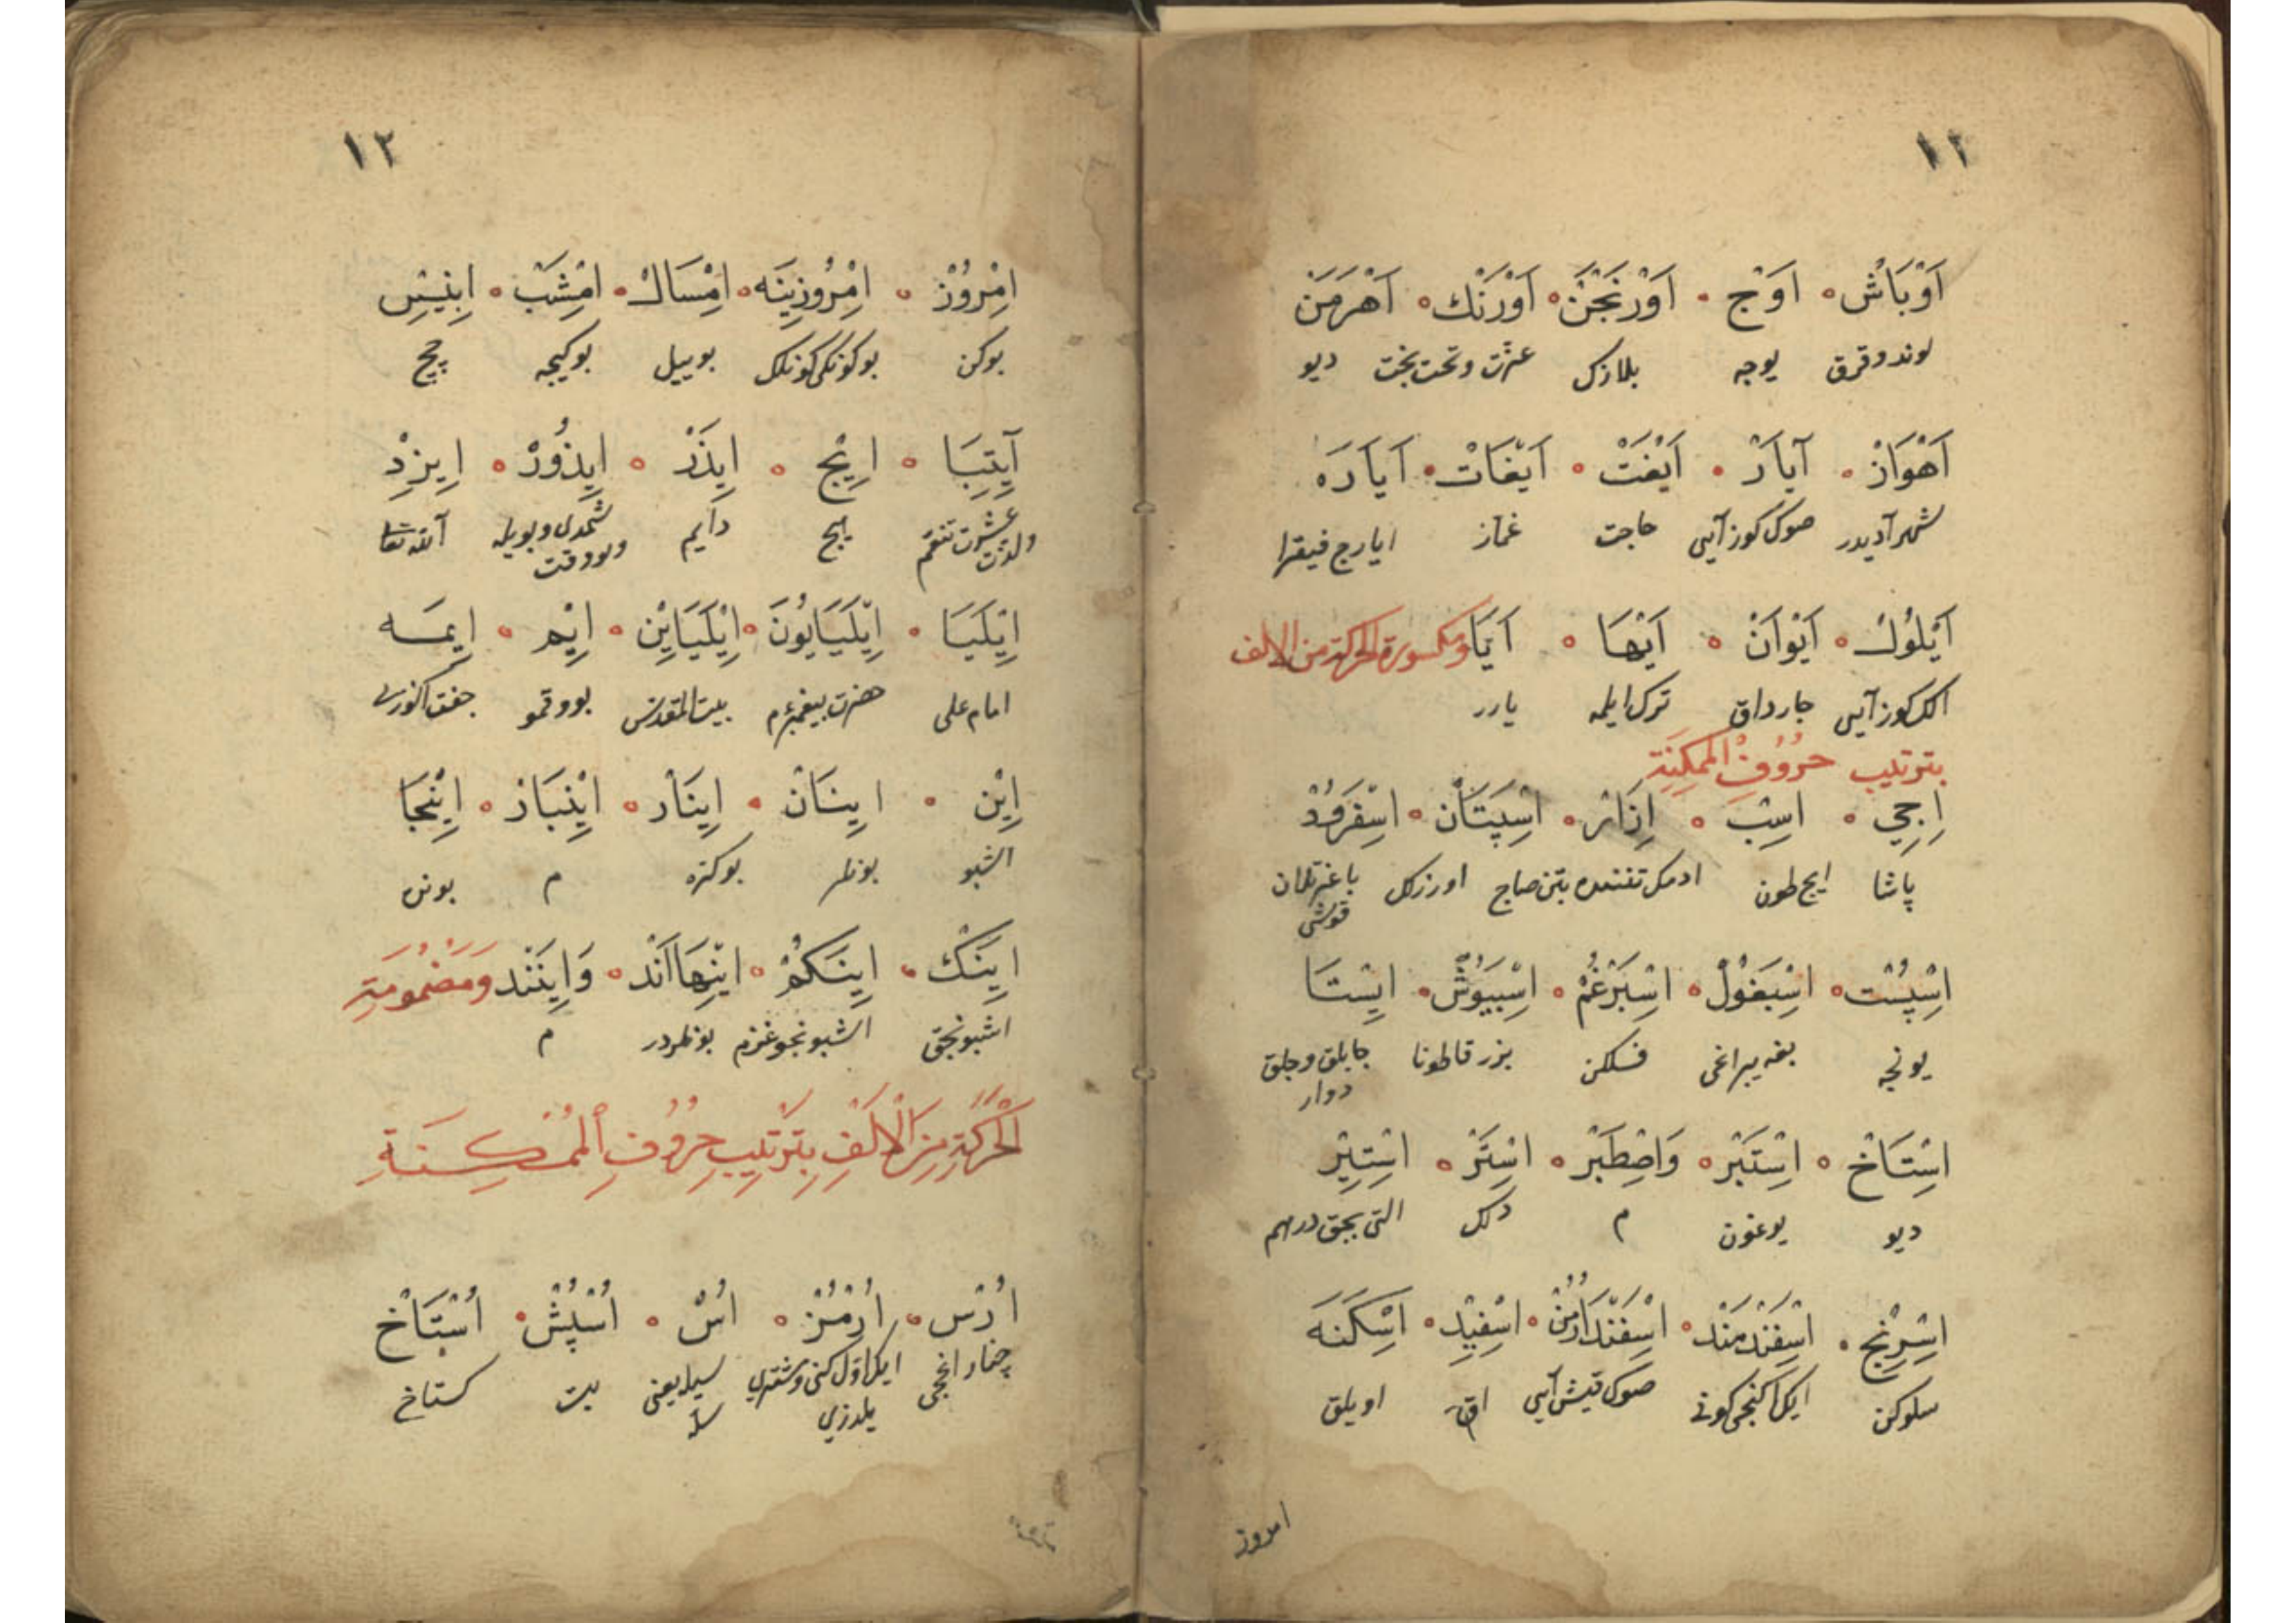 ١٢
اَوْبَاشْ اَوَجْ اَوْرَنْجَنْ اَوْرَنْك اَهْرَمَنْ
لوند وقرق يوجه بلازك عزت وتخت بخت ديو
اَهْوَازْ اَيَارْ اَيْفَتْ اَيْغَاتْ اَيَارَه
شهر آديدر صوك كوز آيى حاجت غماز ايارج فيقرا
اَيْلُولْ اَيْوَانْ اَيْهَا اَيَا ومكسورة الحركة من الالف
الك كوز آيى جارداق ترك ايله يارر
بترتيب حُرُوفِ الممكِنَةِ
اِجِي اِسِبْ اِزَارْ اِسْپِتَانْ اِسْفَرُودْ
پاشا ايچ طون اورزكل باغرتلان
قوشى
اِسْپِسْتْ اِسْبَغُولْ اِسْبَرْغَمْ اِسْبِيُوشْ اِيسْتَا
يونجه بغه يپراغى فسلكن بزر قاطونا
دوار
اِسْتَاخْ اِسْتَبْرْ وَاِصْطَبْرْ اِسْتَرْ اِسْتِيرْ
ديو يوغون م دلك التى بچق درهم
اِسْرِنْجْ اِسْفَنْدْمَنْد اِسْفَنْدَارْمُنْ اِسْفِيدْ اِسْكَنَه
سلوكن ايكل اكنجى كونى صوك قيش آيى اق اويلق
امروز
١٢
اِمْرُوزْ اِمْرُوزِينَه اِمْسَالْ اِمْشَبْ اِبْنِيسْ
بوكن بوكونكى كونلك بوييل بوكيجه
آيِتِبَا اِيْج اِيذَرْ اِيذُورْ اِيزِدْ
عشرت تنعم هيچ دايم شمدى وبويله الله تعا
ولذت وبو وقت
اِيْلَيَا اِيْلَيَايُونَ اِيْلَيَايِنْ اِيْم اِيمَه
امام على حضرت پيغمبرم بيت المقدس بو وقمو جفت اكوزى
اِيْن اِينَانْ اِينَارْ اِيْنْبَارْ اِيْنْجَا
اشبو بونلر بوكزه م بونده
اِينَكْ اِينَكُمْ اِيْنْهَااَنْد وَاِينَنْد وَمَضْمُومَةِ
اشبونجق اشبونجوغزم بونلردر م
الْحَرَكَةِ مِنَ الْاَلِفِ بِتَرْتِيبِ حُرُوفِ الْمُمْكِنَةِ
اُرْسْ اُرْمُزْ اُسْ اُسْپُشْ اُسْتَاخْ
ايكل اول كنى ومشترى سيل يعنى بت كستاخ
يلدزى